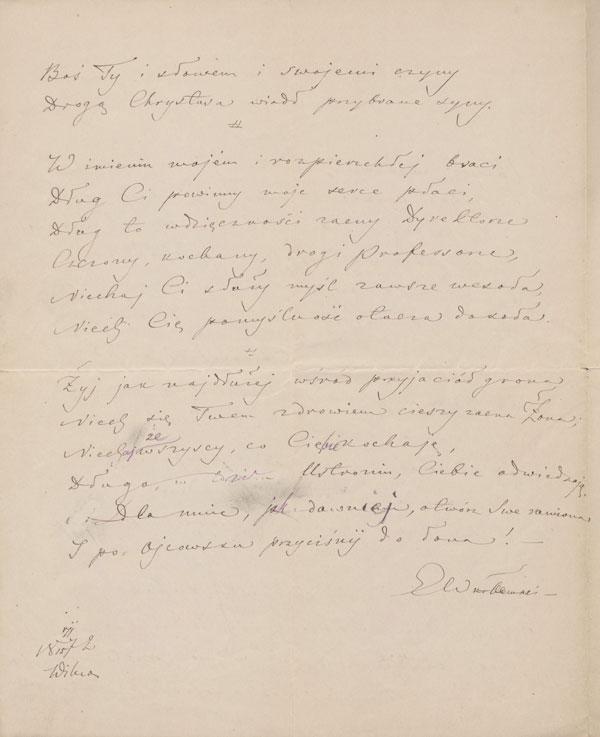 Boś Ty i słowem i swojemi czyny
Drogą Chrystusa wiódł przybrane syny.
W imieniu mojém i rozpierzchłej braci
Dług Ci powinny moje serce płaci,
Dług to wdzięczności zacny Dyrektorze
Czczony, kochany, drogi Professorze,
Niechaj Ci służy myśl zawsze wesoła,
Niech Cię pomyślność otacza dokoła.
Żyj jak najdłużej wśród przyjaciół grona
Niech się Twem zdrowiem cieszy zacna Żona,
że
Niechaj wszyscy, co Ciebie kochają,
Długo, w Ustroniu, Ciebie odwiedzają
i Dla mnie, jak dawniej, otwórz Swe ramiona
I po Ojcowsku przyciśnij do łona! —
18 72
Wilno